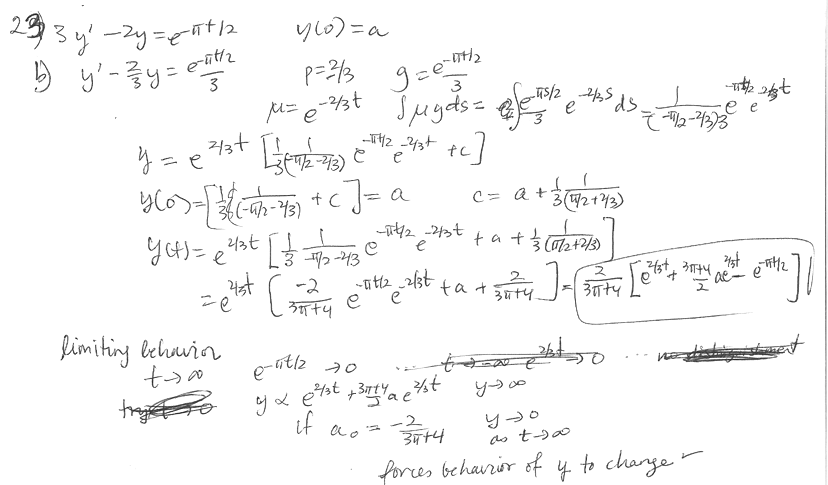 23) 3y' - 2y = e^{-πt/2} y(0) = a
b) y' - 2/3 y = e^{-πt/2}/3 p = 2/3 g = e^{-πt/2}/3
μ = e^{-2/3t} ∫μg ds = ∫ e^{-πs/2}/3 e^{-2/3s} ds = 1/((-π/2 - 2/3)3) e^{-πt/2} e^{-2/3t}
y = e^{2/3t} [1/3 1/(-π/2 - 2/3) e^{-πt/2} e^{-2/3t} + c]
y(0) = [1/3 1/(-π/2 - 2/3) + c] = a c = a + 1/3 1/(π/2 + 2/3)
y(t) = e^{2/3t} [1/3 1/(-π/2 - 2/3) e^{-πt/2} e^{-2/3t} + a + 1/3 1/(π/2 + 2/3)]
= e^{2/3t} [-2/(3π+4) e^{-πt/2} e^{-2/3t} + a + 2/(3π+4)] = 2/(3π+4) [e^{2/3t} + (3π+4)/2 a e^{2/3t} - e^{-πt/2}]
limiting behavior
t → ∞ e^{-πt/2} → 0 ... t → -∞ e^{2/3t} → 0 ...
y ∝ e^{2/3t} + (3π+4)/2 a e^{2/3t} y → ∞
if a₀ = -2/(3π+4) y → 0
as t → ∞
forces behavior of y to change